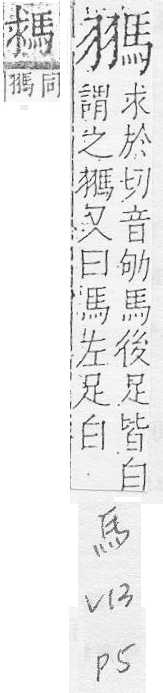 求於切音劬馬後足皆白
謂之又曰馬左足白
同
馬
V13
P5